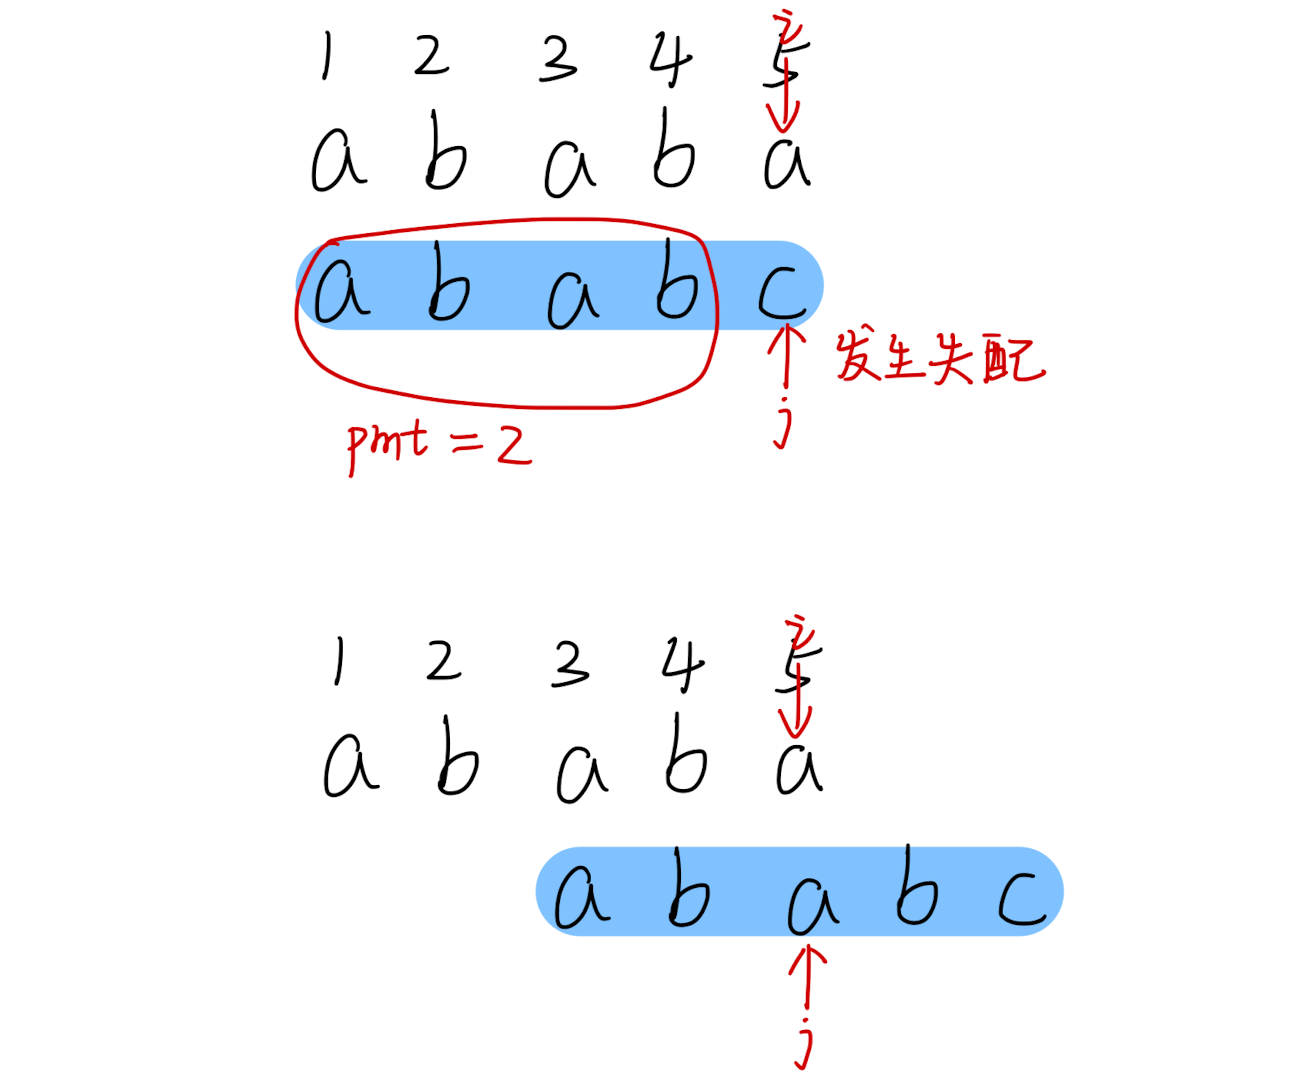 i
1 2 3 4 5
a b a b a
a b a b c
发生失配
j
pmt = 2
i
1 2 3 4 5
a b a b a
a b a b c
j